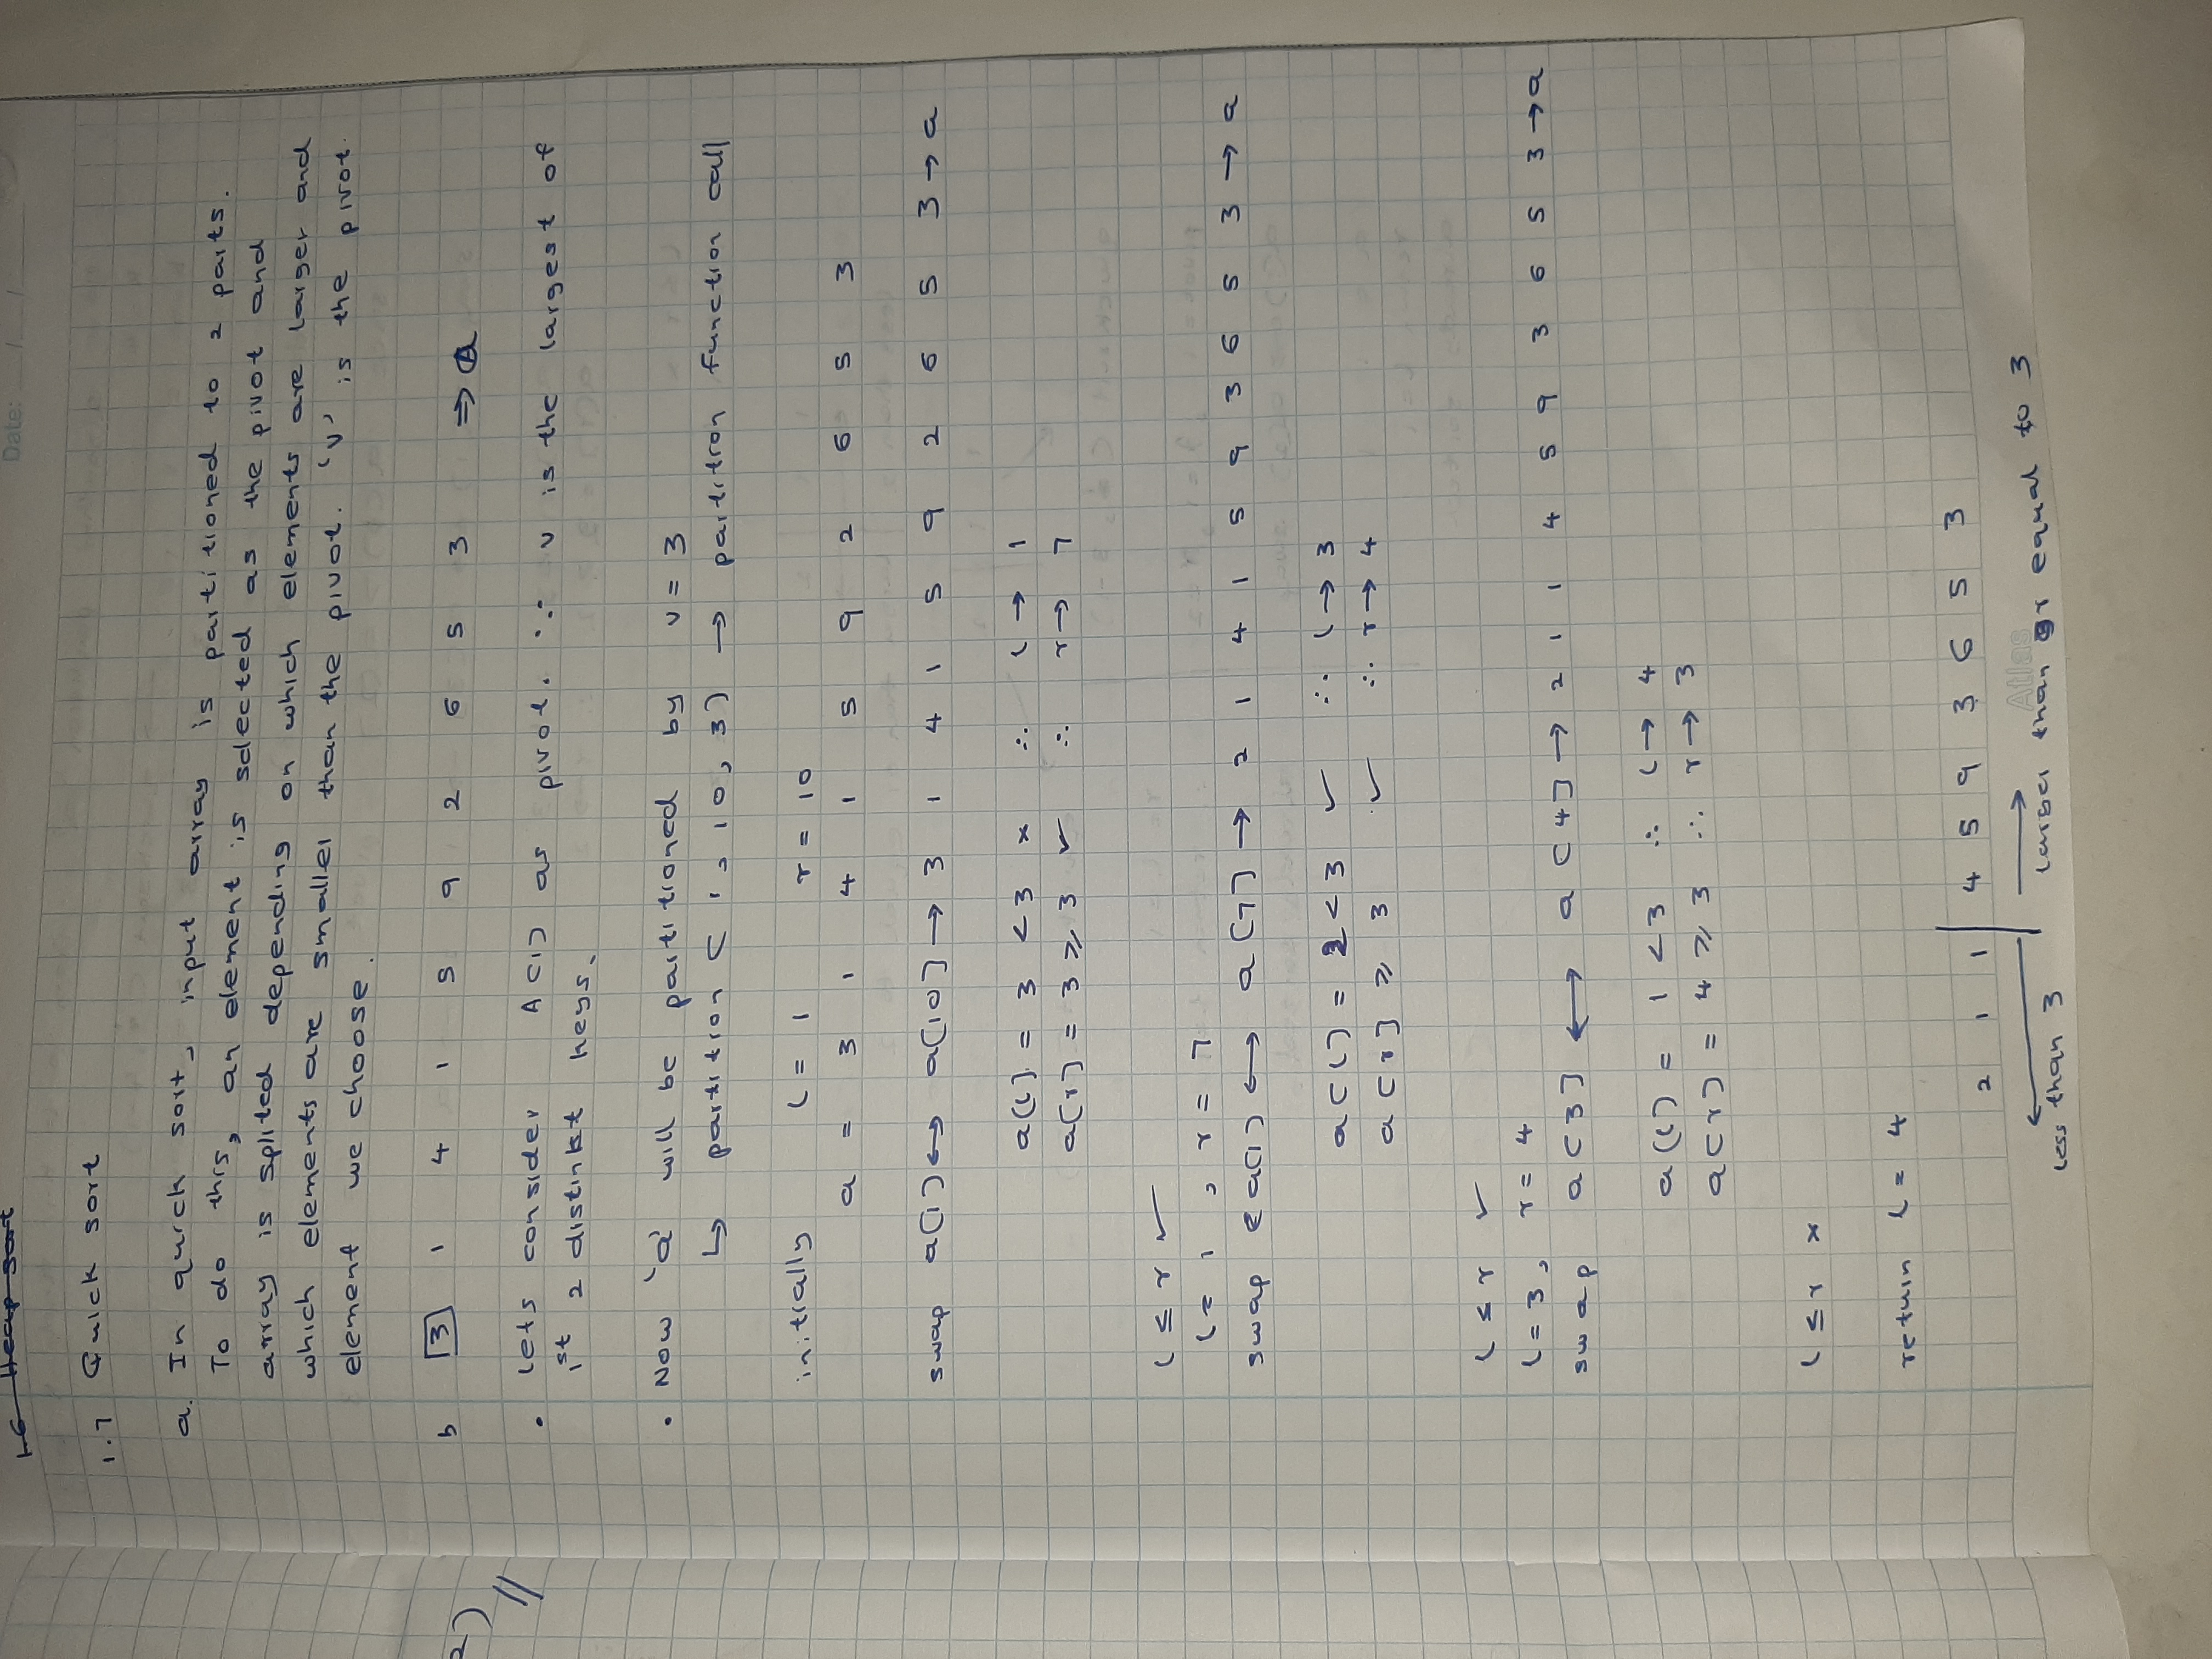 1.6 Heap sort
Date: __/__/____
1.7 Quick sort
a. In quick sort, input array is partitioned to 2 parts.
To do this, an element is selected as the pivot and
array is splited depending on which elements are larger and
which elements are smaller than the pivot. 'v' is the pivot
element we choose.
b [3] 1 4 1 5 9 2 6 5 3 ⇒ a
2) //
• Lets consider A[1] as pivot. ∵ v is the largest of
1st 2 distinkt keys.
• Now 'a' will be partitioned by v = 3
↳ partition ( 1, 10, 3) → partition function call
initially l = 1 r = 10
a = 3 1 4 1 5 9 2 6 5 3
swap a[1] ↔ a[10] → 3 1 4 1 5 9 2 6 5 3 → a
a[l] = 3 < 3 × ∴ l → 1
a[r] = 3 ≥ 3 ✓ ∴ r → 7
l ≤ r ✓
l = 1 , r = 7
swap a[1] ↔ a[7] → 2 1 4 1 5 9 3 6 5 3 → a
a[l] = 2 < 3 ✓ ∴ l → 3
a[r] ≥ 3 ✓ ∴ r → 4
l ≤ r ✓
l = 3, r = 4
swap a[3] ↔ a[4] → 2 1 1 4 5 9 3 6 5 3 → a
a[l] = 1 < 3 ∴ l → 4
a[r] = 4 ≥ 3 ∴ r → 3
l ≤ r ×
return l = 4
2 1 1 | 4 5 9 3 6 5 3
Atlas
less than 3 larger than or equal to 3